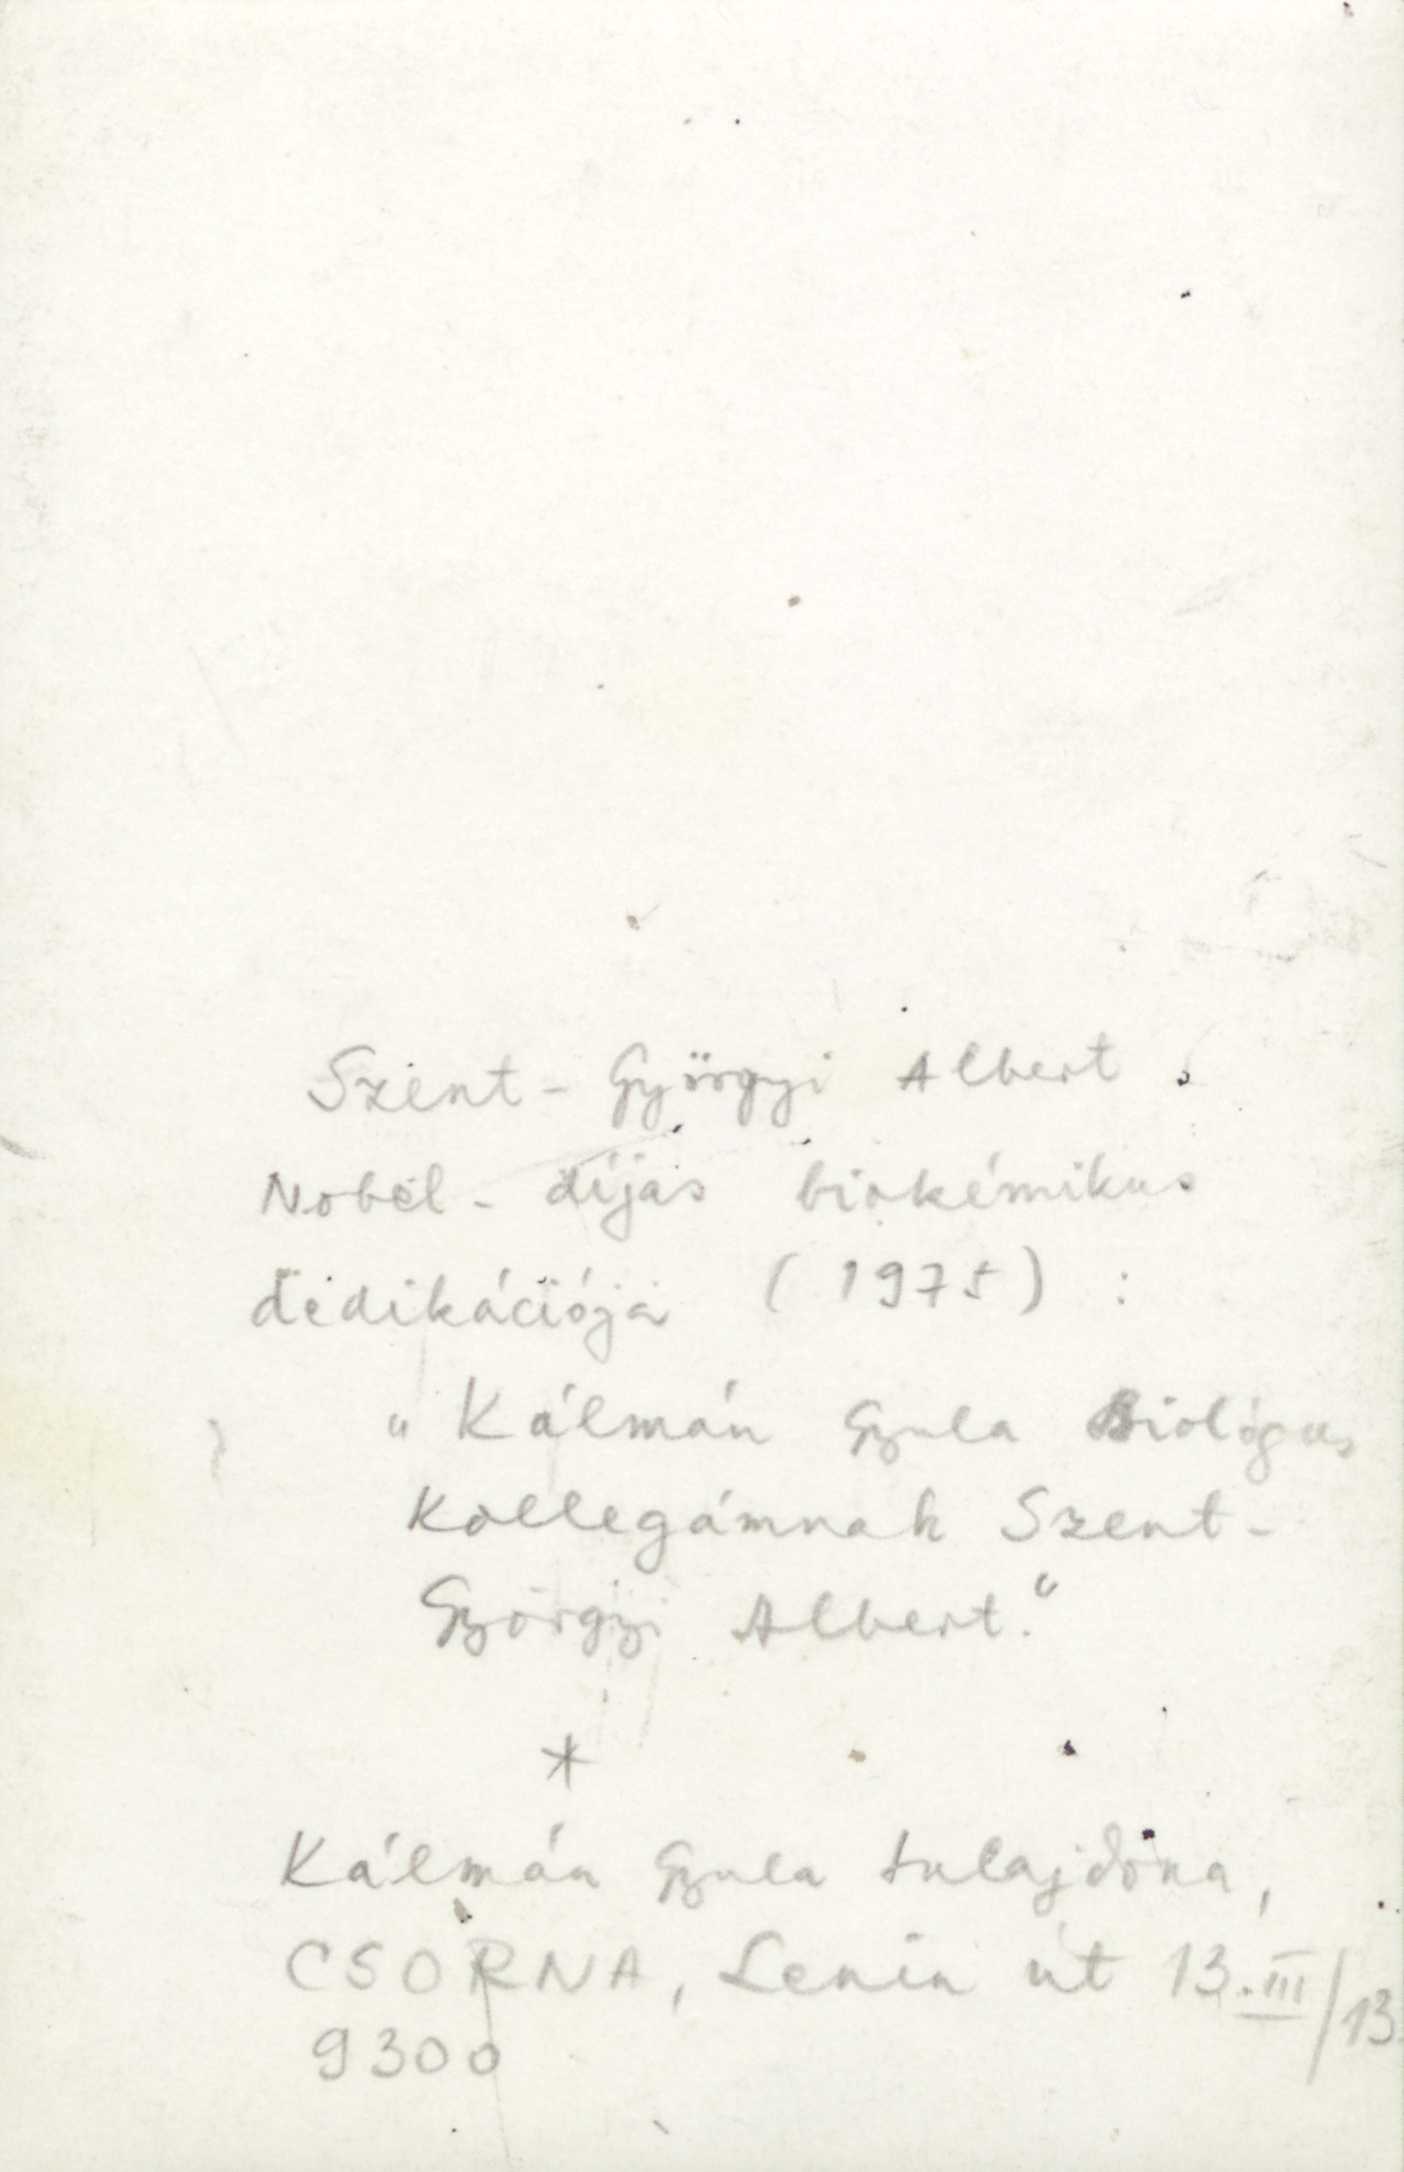 Szent-Györgyi Albert
Nobel-díjas biokémikus
dedikációja (1975) :
„Kálmán Gyula Biológus
Kollegámnak Szent-
Györgyi Albert.“
*
Kálmán Gyula tulajdona,
CSORNA, Lenin út 13.III/13.
9300